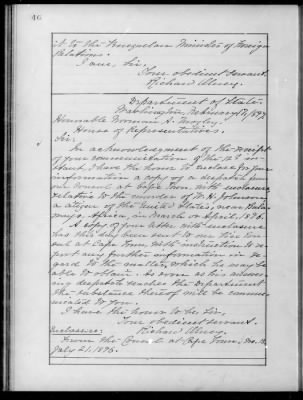 46
it to the Venezuelan Minister of Foreign
Relations.
I am, Sir,
Your obedient servant,
Richard Olney.
Department of State,
Washington, February 1897.
Honorable
House of Representatives.
Sir:
In acknowledgment of the receipt
of your communication of the
instant, I have the honor to enclose for your
information a copy of a despatch from
our Consul at Cape Town, with enclosures
relative to the murder of W. H. Johnson
a citizen of the United States, near
Africa, in March or April, 1896.
A copy of your letter, with enclosure
has this day been sent to our
at Cape Town, with instruction to re-
port any further information in re-
gard to the matter, which he may be
able to obtain. As soon as his answer-
ing despatch reaches the Department
the substance thereof will be commu-
nicated to you.
I have the honor to be, Sir,
Your obedient servant,
Richard Olney.
Enclosure:
From the Consul at Cape Town, No.
July 21, 1896.